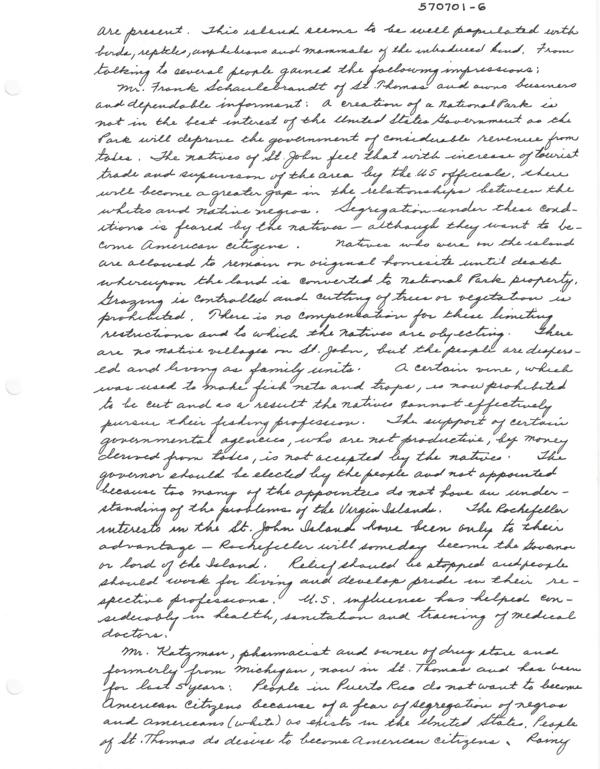 570701-6
are present. This island seems to be well populated with
birds, reptiles, amphibians and mammals of the introduced kind. From
talking to several people gained the following impressions:
Mr. Frank Schaulebrandt of St. Thomas and owns business
and dependable informant: A creation of a National Park is
not in the best interest of the United States Government as the
Park will deprive the government of considerable revenue from
taxes. The natives of St. John feel that with increase of tourist
trade and supervision of the area by the US officials, there
will become a greater gap in the relationships between the
whites and native negros. Segregation under these cond-
itions is feared by the natives - although they want to be-
come American citizens. Natives who were on the island
are allowed to remain on original homesite until death
whereupon the land is converted to National Park property.
Grazing is controlled and cutting of trees or vegetation is
prohibited. There is no compensation for these limiting
restrictions and to which the natives are objecting. There
are no native villages on St. John, but the people are dispers-
ed and living as family units. A certain vine, which
was used to make fish nets and traps, is now prohibited
to be cut and as a result the natives cannot effectively
pursue their fishing profession. The support of certain
governmental agencies, who are not productive, by money
derived from taxes, is not accepted by the natives. The
governor should be elected by the people and not appointed
because too many of the appointees do not have an under-
standing of the problems of the Virgin Islands. The Rockefeller
interests in the St. John Island have been only to their
advantage - Rockefeller will someday become the Governor
or lord of the Island. Relief should be stopped and people
should work for living and develop pride in their re-
spective professions. U.S. influence has helped con-
siderably in health, sanitation and training of medical
doctors.
Mr. Katzman, pharmacist and owner of drug store and
formerly from Michigan, now in St. Thomas and has been
for last 5 years: People in Puerto Rico do not want to become
American citizens because of a fear of segregation of negros
and americans (white) as exists in the United States. People
of St. Thomas do desire to become American citizens. Rainy